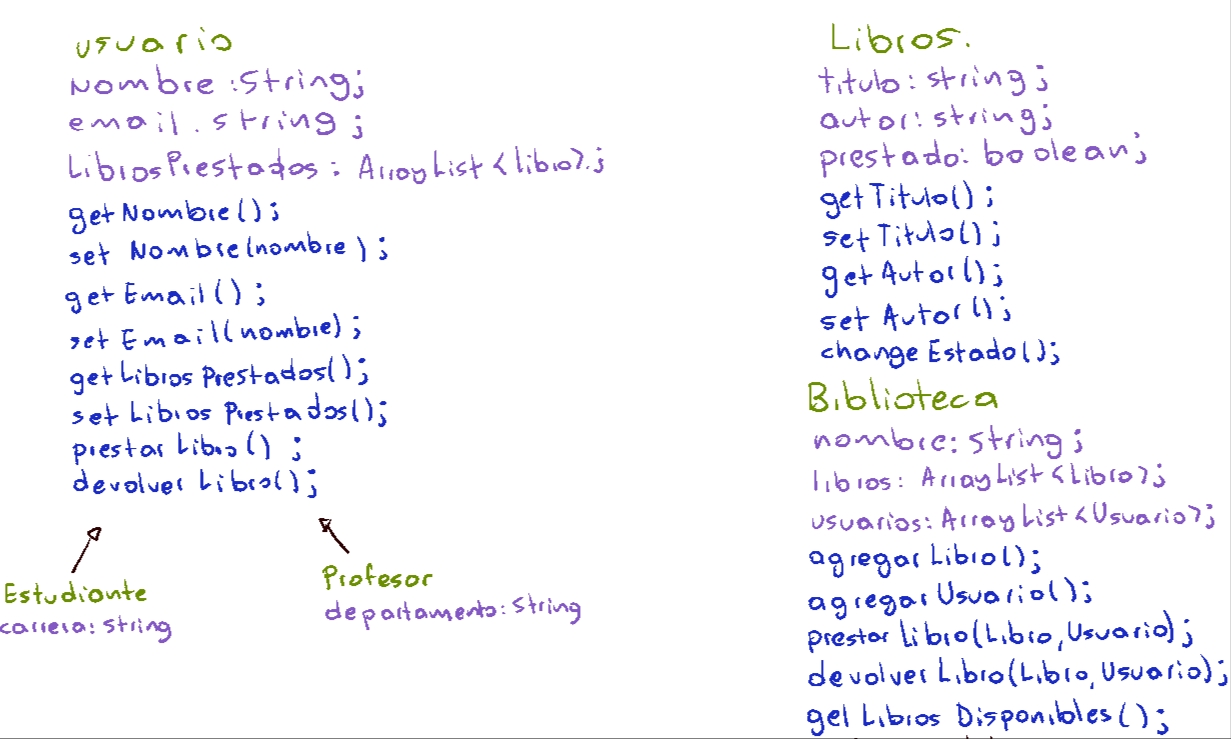 usuario
Nombre : String;
email. string;
LibrosPrestados : ArrayList <libro>.;
getNombre();
set Nombre(nombre);
getEmail();
set Email(nombre);
getLibros Prestados();
set Libros Prestados();
prestar Libro();
devolver Libro();
Estudiante
carrera: string
Profesor
departamento: String
Libros.
titulo: string;
autor: string;
prestado: boolean;
getTitulo();
setTitulo();
getAutor();
set Autor();
changeEstado();
Biblioteca
nombre: string;
libros: ArrayList <Libro>;
usuarios: ArrayList <Usuario>;
agregar Libro();
agregar Usuario();
prestar libro(Libro, Usuario);
devolver Libro(Libro, Usuario);
get Libros Disponibles();